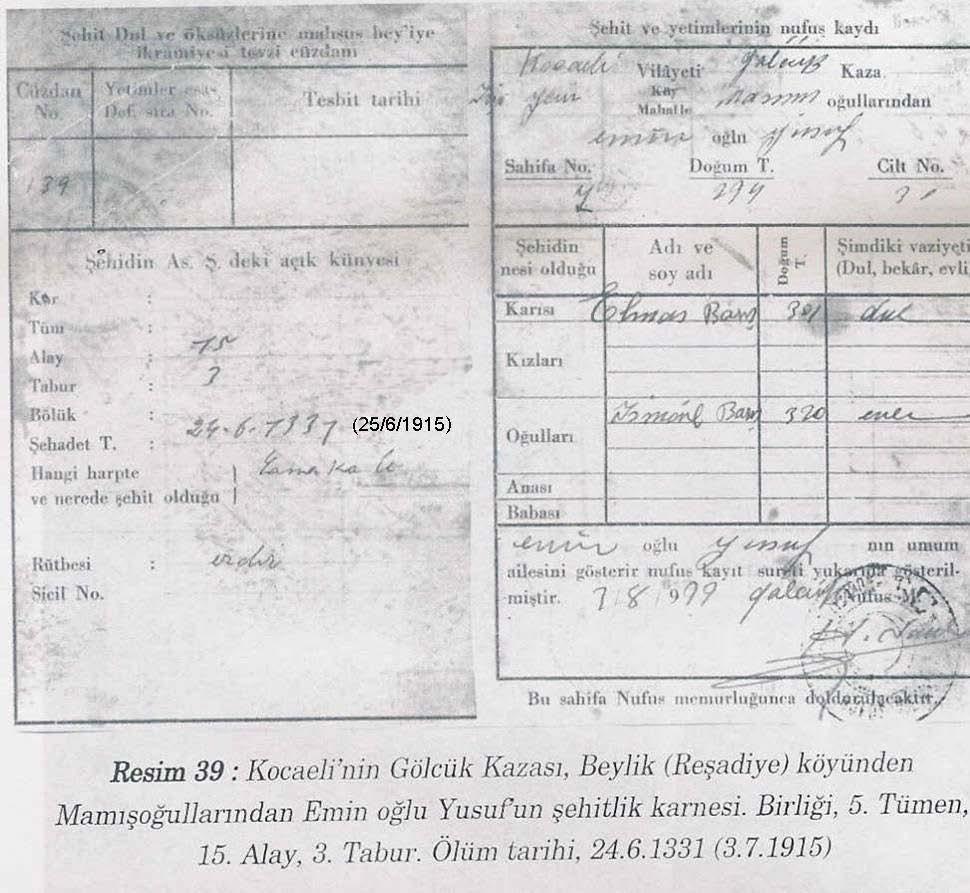 Şehit Dul ve öksüzlerine mahsus bey'iye
ikramiyesi tevzi cüzdanı
Cüzdan No.
Yetimler esas Def. sıra No.
Tesbit tarihi
139
Şehidin As. Ş. deki açık künyesi
Kor :
Tüm :
Alay : 15
Tabur : 3
Bölük :
Şehadet T. : 24.6.1331 (25/6/1915)
Hangi harpte
ve nerede şehit olduğu
Rütbesi :
Sicil No.
Şehit ve yetimlerinin nufus kaydı
Kocaeli Vilâyeti Gölcük Kaza
Köy
Mahalle oğullarından
emin oğlu Yusuf
Sahifa No. Doğum T. Cilt No.
299
Şehidin nesi olduğu
Adı ve soy adı
Doğum T.
Şimdiki vaziyeti (Dul, bekâr, evli
Karısı Elmas Barış 301 dul
Kızları
Oğulları Barış 320
Anası
Babası
emin oğlu Yusuf nın umum
ailesini gösterir nufus kayıt sureti yukarıda gösteril-
miştir. Gölcük Nufus M.
Bu sahifa Nufus memurluğunca doldurulacaktır.
Resim 39 : Kocaeli'nin Gölcük Kazası, Beylik (Reşadiye) köyünden
Mamışoğullarından Emin oğlu Yusuf'un şehitlik karnesi. Birliği, 5. Tümen,
15. Alay, 3. Tabur. Ölüm tarihi, 24.6.1331 (3.7.1915)